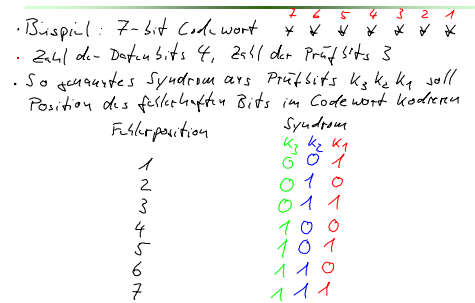 7 6 5 4 3 2 1
· Beispiel: 7-bit Codewort x x x x x x x
· Zahl der Datenbits 4, Zahl der Prüfbits 3
· So genanntes Syndrom aus Prüfbits K3 K2 K1 soll
Position des fehlerhaften Bits im Codewort kodieren
Fehlerposition Syndrom
K3 K2 K1
1 0 0 1
2 0 1 0
3 0 1 1
4 1 0 0
5 1 0 1
6 1 1 0
7 1 1 1